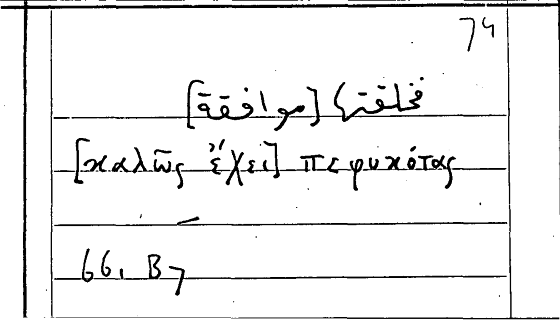 74
فخلقتها [موافقة]
[καλῶς ἔχει] πεφυκότας
66, B7